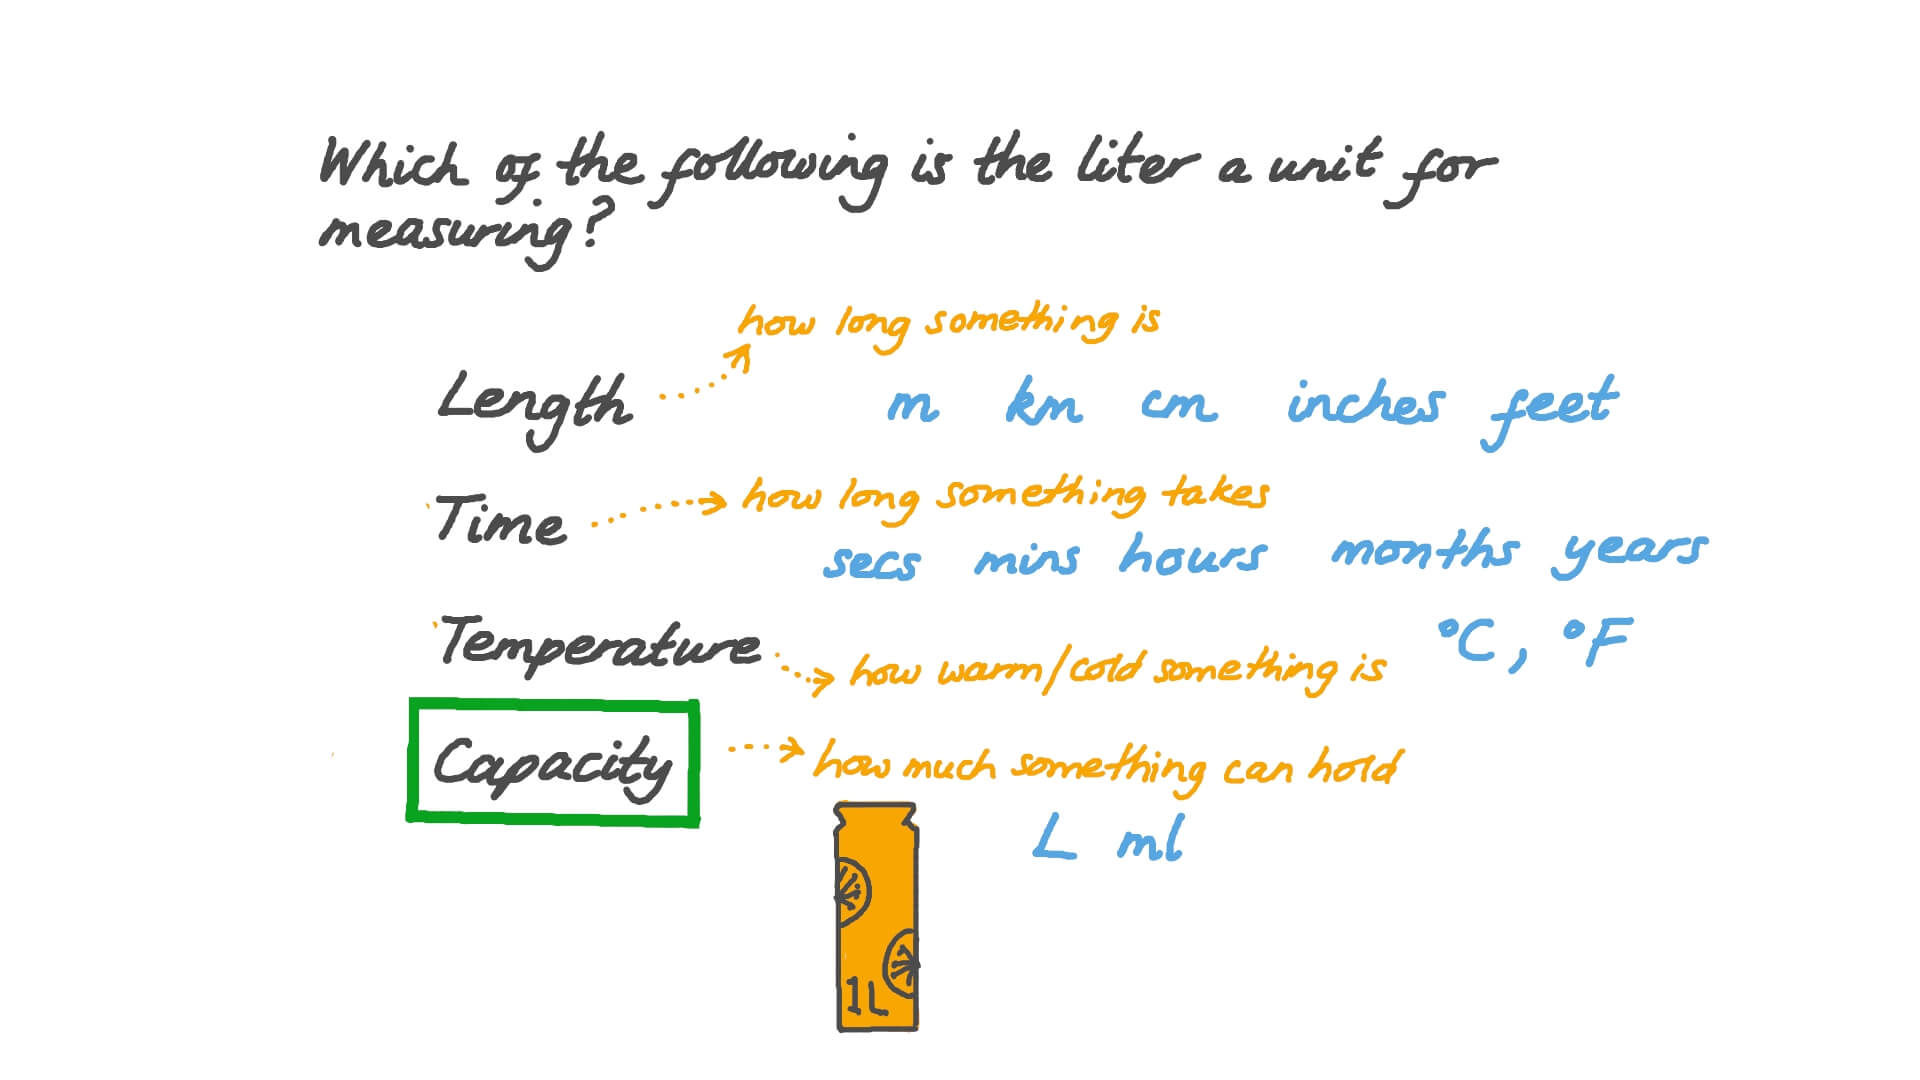 Which of the following is the liter a unit for
measuring?
how long something is
Length
m km cm inches feet
how long something takes
Time
secs mins hours months years
Temperature
°C, °F
how warm/cold something is
Capacity
how much something can hold
L ml
1L